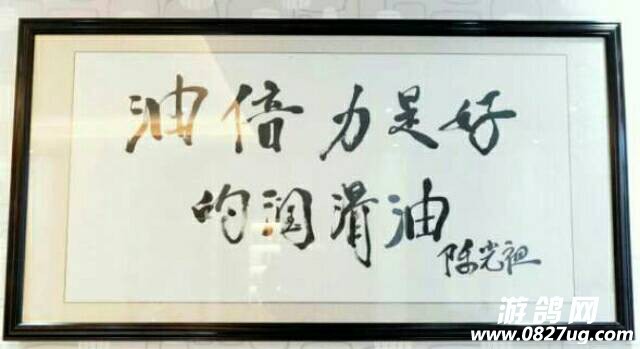 油倍力是好
的润滑油
陈光祖
游鸽网
www.0827ug.com